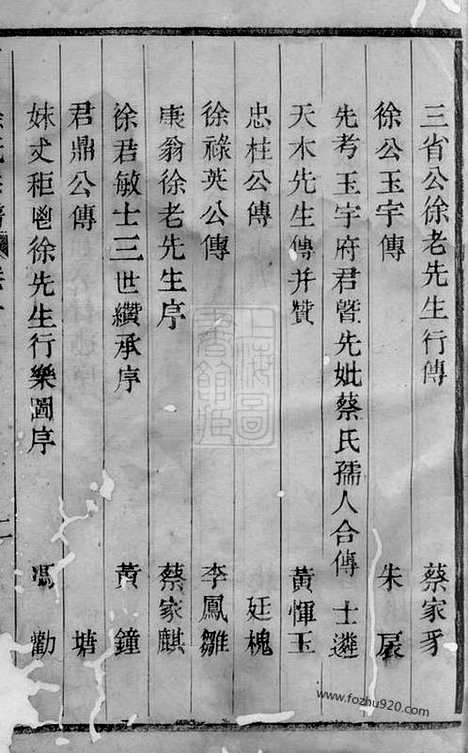 三省公徐老先生行傳 蔡家豸
徐公玉宇傳 朱扆
先考玉宇府君暨先妣蔡氏孺人合傳 士遴
天木先生傳并贊 黃惲玉
忠桂公傳 廷槐
徐祿英公傳 李鳳雛
庚翁徐老先生序 蔡家麒
徐君敏士三世纘承序 黃鐘
君鼎公傳 塘
妹丈秬鬯徐先生行樂圖序 馮勸
上海圖書館藏
www.fozhu920.com